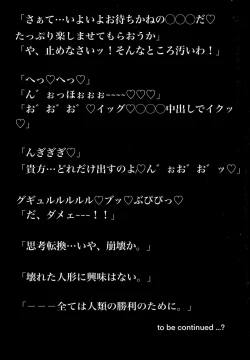 「さぁて…いよいよお待ちかねの◯◯◯だ♡
たっぷり楽しませてもらおうか」
「や、止めなさいッ！そんなところ汚いわ！」
「へっ♡へっ♡」
「ん゛ぉっほぉぉぉ~~~~♡♡♡」
「お゛お゛お゛♡イッグ◯◯◯中出しでイクッ
♡」
「んぎぎぎ♡」
「貴方…どれだけ出すのよ♡ん゛ぉおお゛ッ♡」
グギュルルルルル♡ブッ♡ぶぴぴっ♡
「だ、ダメェ---！！」
「思考転換…いや、崩壊か。」
「壊れた人形に興味はない。」
「－－－全ては人類の勝利のために。」
to be continued ...?